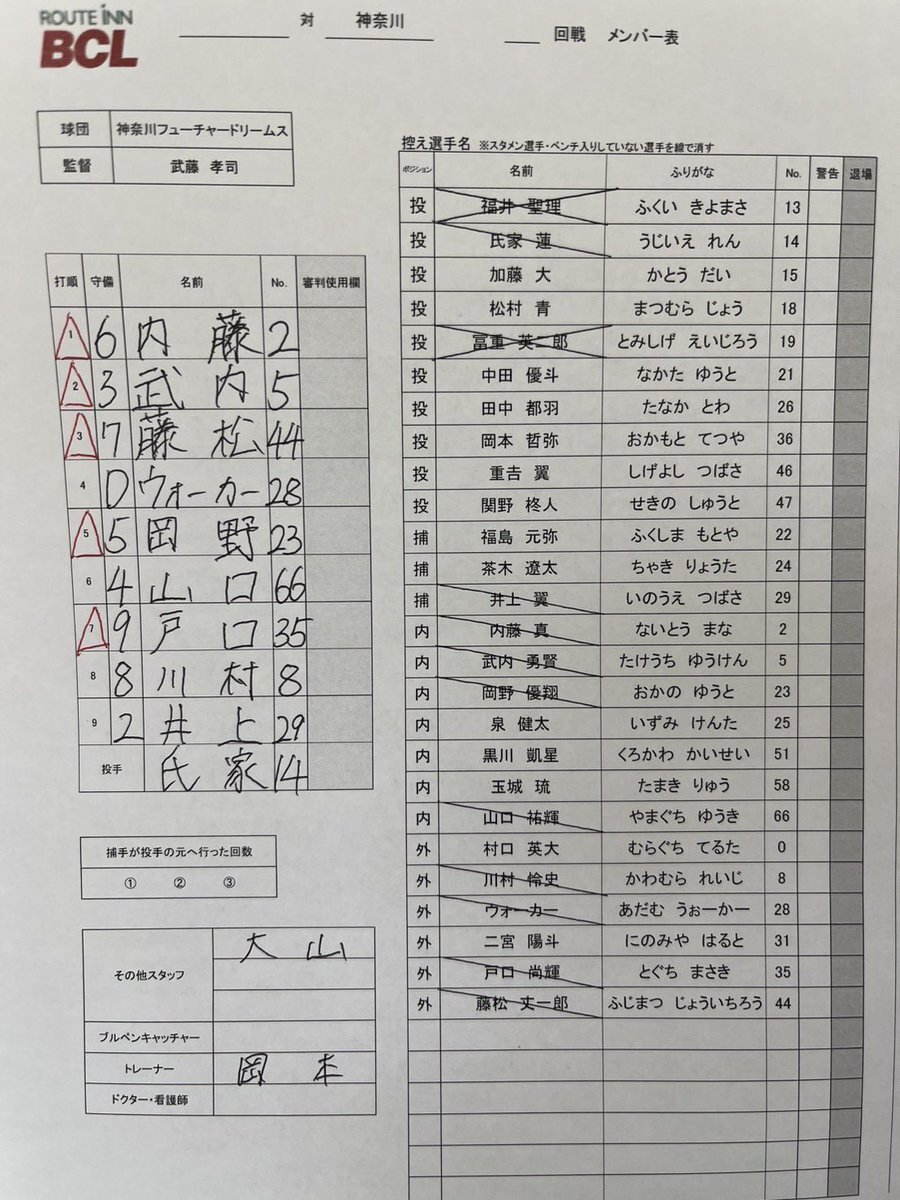 ROUTE iNN
BCL
対 神奈川 回戦 メンバー表
球団 神奈川フューチャードリームス
監督 武藤 孝司
打順 守備 名前 No. 審判使用欄
1 6 内藤 2
2 3 武内 5
3 7 藤松 44
4 D ウォーカー 28
5 5 岡野 23
6 4 山口 66
7 9 戸口 35
8 8 川村 8
9 2 井上 29
投手 氏家 14
捕手が投手の元へ行った回数
① ② ③
その他スタッフ 大山
ブルペンキャッチャー
トレーナー 岡本
ドクター・看護師
控え選手名 ※スタメン選手・ベンチ入りしていない選手を線で消す
ポジション 名前 ふりがな No. 警告 退場
投 福井 聖理 ふくい きよまさ 13
投 氏家 蓮 うじいえ れん 14
投 加藤 大 かとう だい 15
投 松村 青 まつむら じょう 18
投 冨重 英二郎 とみしげ えいじろう 19
投 中田 優斗 なかた ゆうと 21
投 田中 都羽 たなか とわ 26
投 岡本 哲弥 おかもと てつや 36
投 重吉 翼 しげよし つばさ 46
投 関野 柊人 せきの しゅうと 47
捕 福島 元弥 ふくしま もとや 22
捕 茶木 遼太 ちゃき りょうた 24
捕 井上 翼 いのうえ つばさ 29
内 内藤 真 ないとう まな 2
内 武内 勇賢 たけうち ゆうけん 5
内 岡野 優翔 おかの ゆうと 23
内 泉 健太 いずみ けんた 25
内 黒川 凱星 くろかわ かいせい 51
内 玉城 琉 たまき りゅう 58
内 山口 祐輝 やまぐち ゆうき 66
外 村口 英大 むらぐち てるた 0
外 川村 怜史 かわむら れいじ 8
外 ウォーカー あだむ うぉーかー 28
外 二宮 陽斗 にのみや はると 31
外 戸口 尚輝 とぐち まさき 35
外 藤松 丈一郎 ふじまつ じょういちろう 44